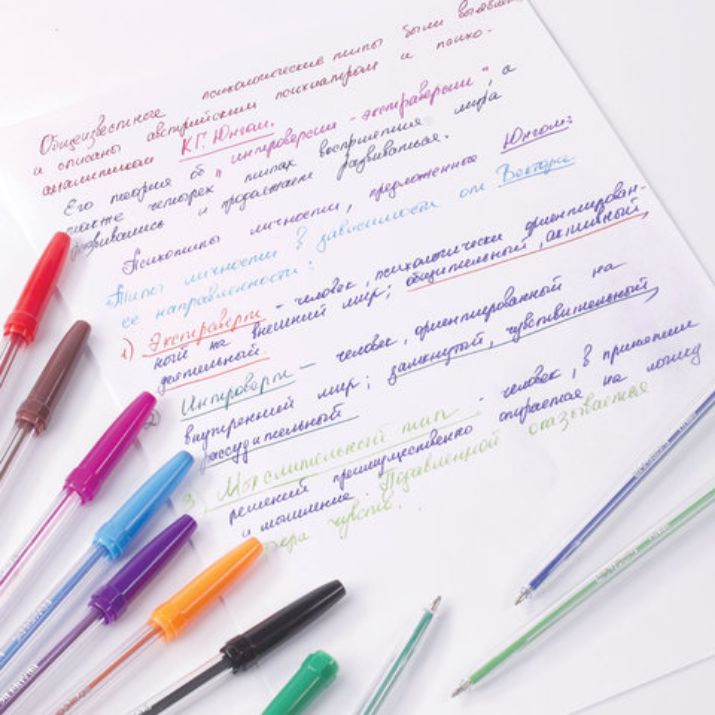 Общеизвестные психологические типы были выявлен
и описаны австрийским психиатром и психо-
аналитиком К.Г. Юнгом.
Его теория об "интроверсии - экстраверсии", а
также четырех типах восприятия мира
развивались и продолжают развиваться.
Психотипы личности, предложенные Юнгом:
"Типы личности в зависимости от Вектора
ее направленности:
1) Экстраверты - человек, психологически ориентирован-
ный на внешний мир; общительный, активный,
деятельный.
Интроверты - человек, ориентированный на
внутренний мир; замкнутый, чувствительный,
рассудительный
Мыслительный тип - человек, в принятии
решений преимущественно опирается на логику
и мышление. Подавленной оказывается
сфера чувств.